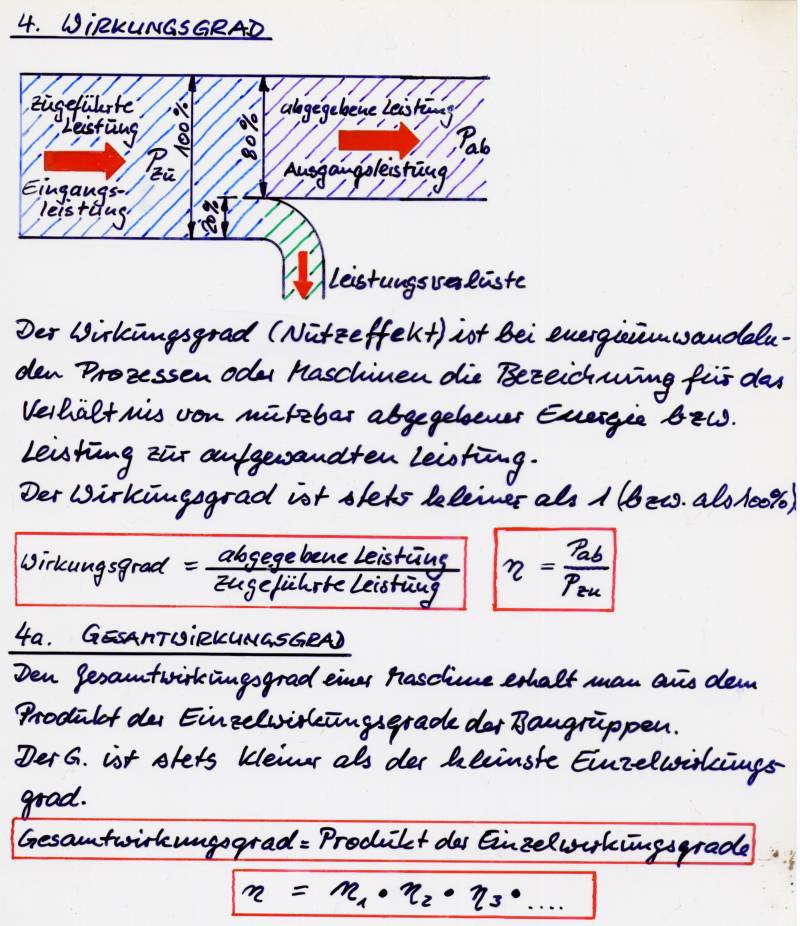 4. WIRKUNGSGRAD
zugeführte
Leistung
Pzu
Eingangs-
leistung
100%
80%
20%
abgegebene Leistung
Pab
Ausgangsleistung
Leistungsverluste
Der Wirkungsgrad (Nutzeffekt) ist bei energieumwandeln-
den Prozessen oder Maschinen die Bezeichnung für das
Verhältnis von nutzbar abgegebener Energie bzw.
Leistung zur aufgewandten Leistung.
Der Wirkungsgrad ist stets kleiner als 1 (bzw. als 100%)
Wirkungsgrad = abgegebene Leistung / zugeführte Leistung
η = Pab / Pzu
4a. GESAMTWIRKUNGSGRAD
Den Gesamtwirkungsgrad einer Maschine erhalt man aus dem
Produkt der Einzelwirkungsgrade der Baugruppen.
Der G. ist stets kleiner als der kleinste Einzelwirkungs-
grad.
Gesamtwirkungsgrad = Produkt der Einzelwirkungsgrade
η = η1 • η2 • η3 • ....